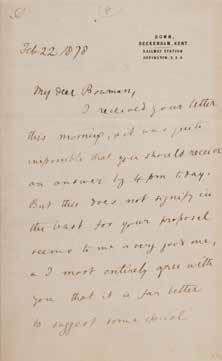 DOWN,
BECKENHAM, KENT.
RAILWAY STATION
ORPINGTON. S.E.R.
Feb 22 1878
My dear Bowman,
I received your letter
this morning, & it was quite
impossible that you should receive
an answer by 4 P.m today.
But this does not signify in
the least for your proposal
seems to me a very good one,
& I most entirely agree with
you that it is far better
to suggest some special